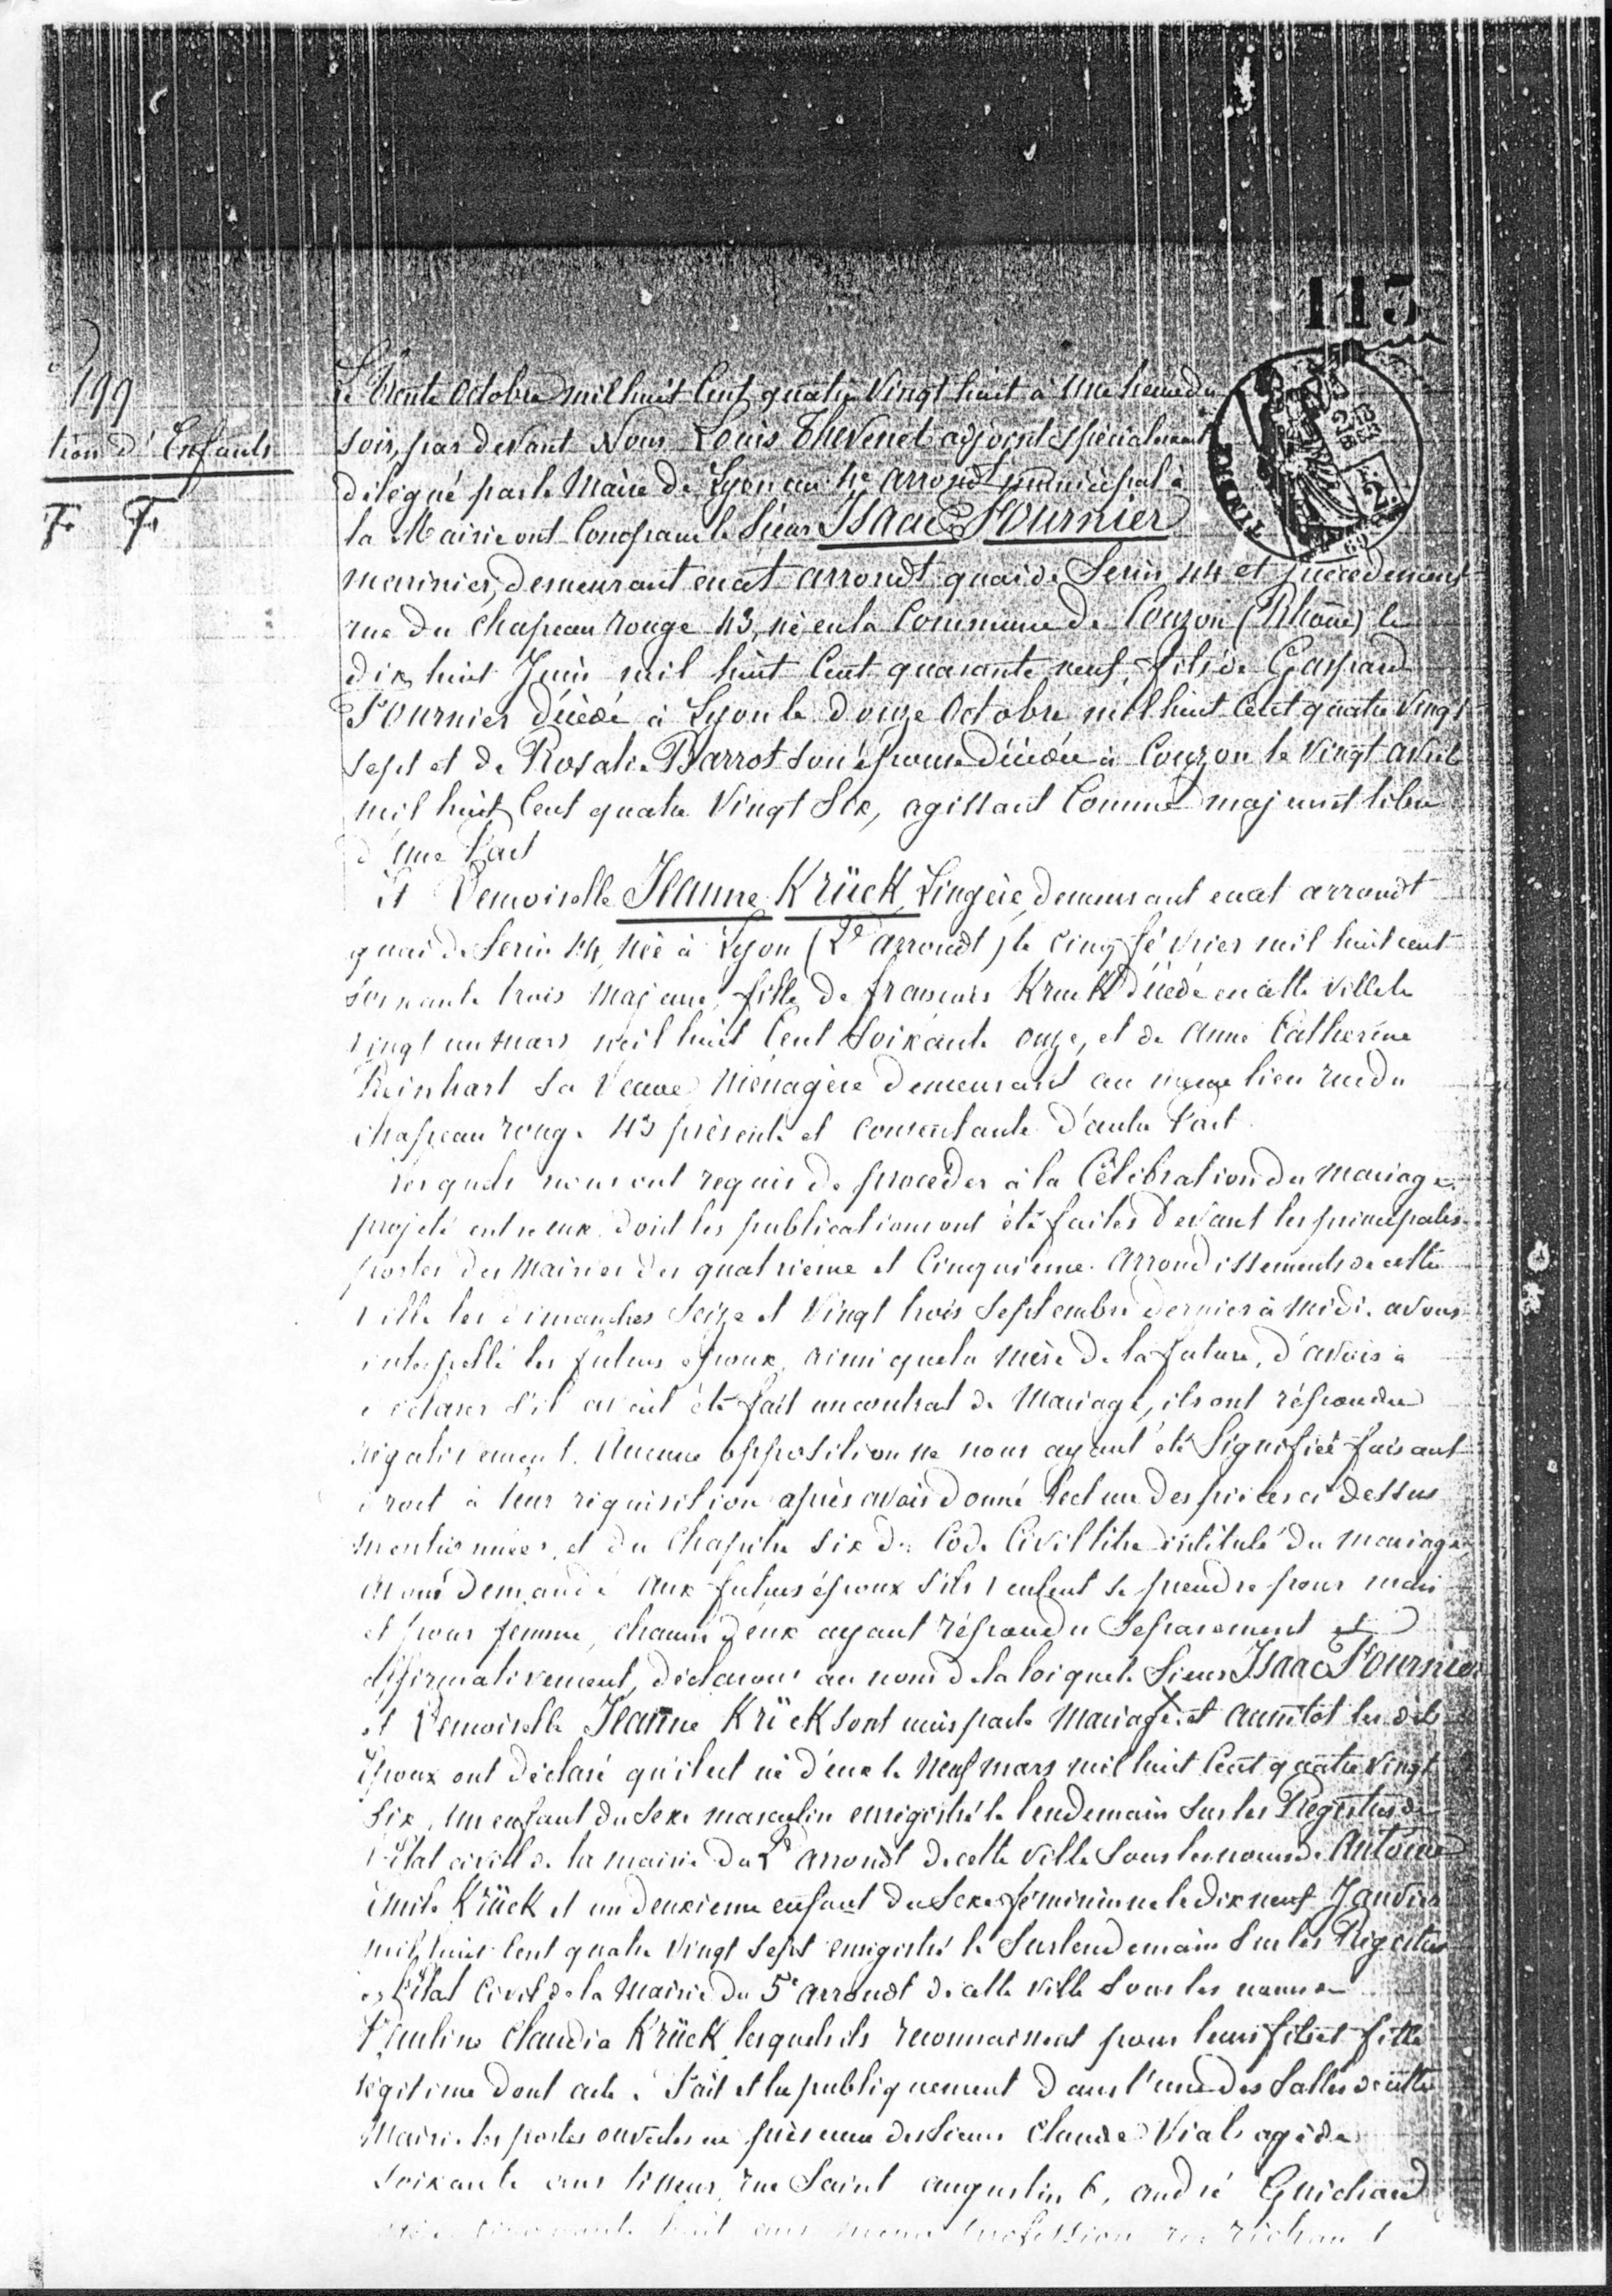 113
199
tion d'Enfants
F. F.
Le trente Octobre mil huit Cent quatre Vingt huit à une heure du
soir, par devant Nous Louis Thevenet adjoint spécialement
délégué par le Maire de Lyon au 4e arrondt municipal à
la Mairie ont Comparu le Sieur Isaac Fournier
marinier, demeurant en cet arrondt quai de Serin 44 et précédement
rue du Chapeau rouge 43, né en la Commune de Couzon (Rhône) le
dix huit Juin mil huit Cent quarante neuf, fils de Gaspard
Fournier décédé à Lyon le douze Octobre mil huit Cent quatre Vingt
sept et de Rosalie Barrot son épouse décédée à Couzon le Vingt avril
mil huit Cent quatre Vingt Six, agissant Comme majeur et libre
d'une Part
Et Demoiselle Jeanne Krück, Lingère, demeurant en cet arrondt
quai de Serin 44, née à Lyon (2e arrondt) le cinq février mil huit cent
soixante trois Majeure, fille de francois Kruck décédé en cette Ville le
vingt un mars mil huit Cent Soixante onze, et de Anne Catherine
Reinhart sa Veuve Ménagère demeurant au même lieu rue du
chapeau rouge 43 présente et consentante d'autre Part.
Lesquels nous ont requis de procéder à la Célébration du mariage
projeté entre eux dont les publications ont été faites devant les principales
portes des Mairies des quatrième et Cinquième Arrondissements de cette
Ville les dimanches Seize et Vingt trois Septembre dernier à midi. avons
interpellé les futurs époux, ainsi que la mère de la future, d'avoir à
déclarer s'il avait été fait un contrat de Mariage, ils ont répondu
négativement. Aucune opposition ne nous ayant été Signifiée faisant
droit à leur réquisition après avoir donné lecture des pièces ci dessus
mentionnées, et du Chapitre six du Code Civil titre intitulé du mariage
avons demandé aux futurs époux s'ils veulent se prendre pour mari
et pour femme, chacun d'eux ayant répondu séparément et
affirmativement, déclarons au nom de la loi que le Sieur Isaac Fournier
et Demoiselle Jeanne Krück sont unis par le Mariage. et aussitôt les dits
Epoux ont déclaré qu'il est né d'eux le Neuf mars mil huit Cent quatre vingt
Six, un enfant du Sexe masculin enregistré le lendemain sur les Registres de
l'Etat civil de la mairie du 2e arrondt de cette Ville Sous les noms de Antoine
Emile Krück et un deuxieme enfant du Sexe féminin né le dix neuf Janvier
mil huit Cent quatre Vingt Sept enregistré le Surlendemain Sur les Registres
de l'Etat Civil de la Mairie du 5e arrondt de cette Ville Sous les noms de
Pauline Claudia Krück, lesquels ils reconnaissent pour leurs fils et fille
légitime dont acte. Fait et lu publiquement dans l'une des Salles de cette
Mairie les portes ouvertes en présence des Sieurs Claude Viale agé de
soixante ans tisseur, rue Saint augustin 6, andré Guichard
agé de cinquante huit ans même profession rue richan